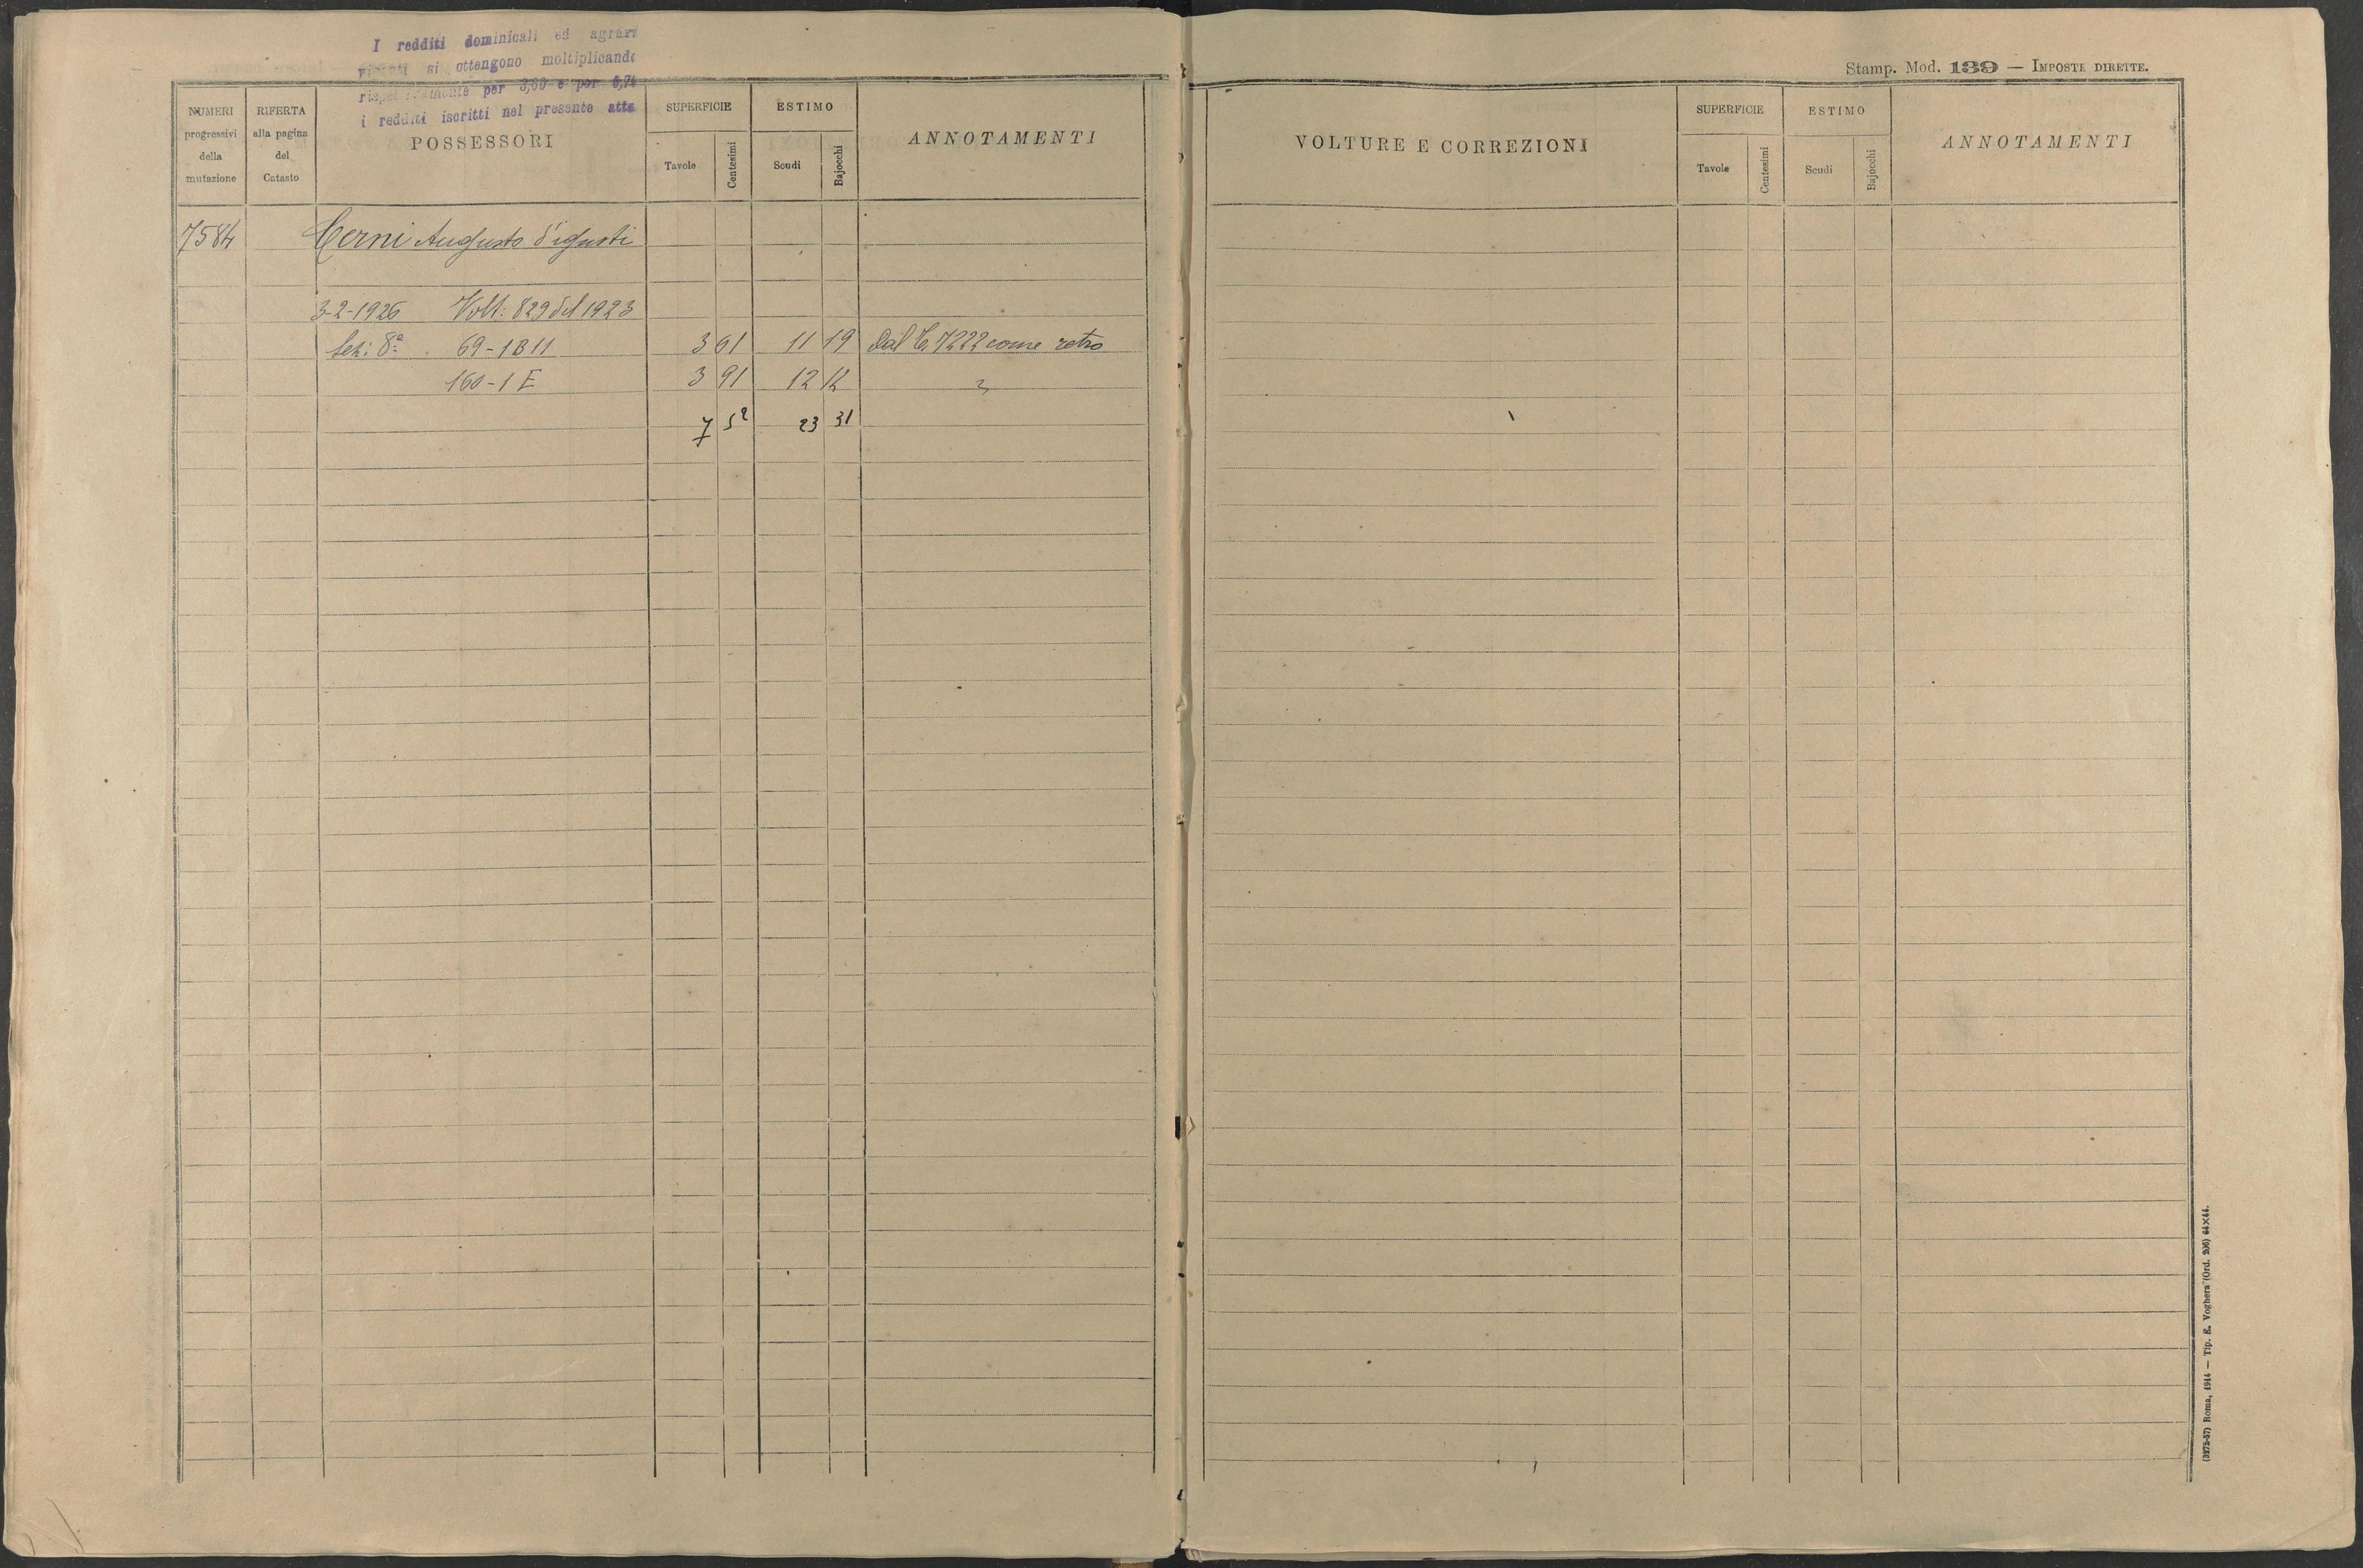 I redditi dominicali ed agrari
si ottengono moltiplicando
per 3,60 e per 0,74
i redditi iscritti nel presente atto
Stamp. Mod. 139 — IMPOSTE DIRETTE.
NUMERI progressivi della mutazione
RIFERTA alla pagina del Catasto
POSSESSORI
SUPERFICIE
Tavole
Centesimi
ESTIMO
Scudi
Bajocchi
ANNOTAMENTI
7584 Cerni Augusto
3-2-1926 Volt: 829 del 1923
Sez: 8ª 69-1B11 3 61 11 19 Dal C. 7222 come retro
160-1E 3 91 12 12 "
7 52 23 31
VOLTURE E CORREZIONI
SUPERFICIE
Tavole
Centesimi
ESTIMO
Scudi
Bajocchi
ANNOTAMENTI
(3272-57) Roma, 1914 — Tip. E. Voghera (Ord. 206) 64×44.